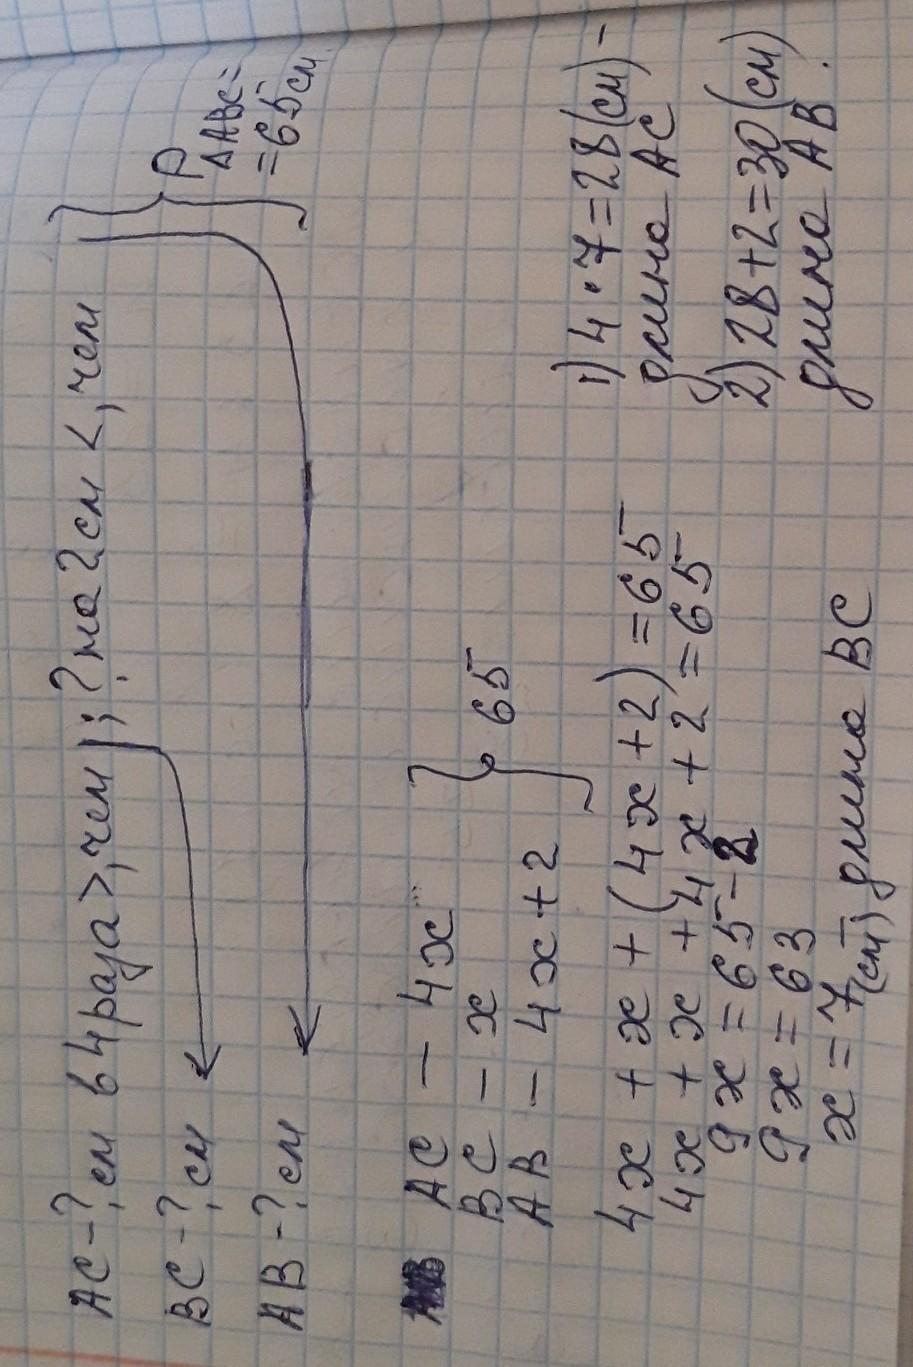 AC-?см в 4 раза >, чем ; ? на 2 см <, чем
BC-?, см
AB-?, см
P ΔABC=
=65 см.
AC - 4x
BC - x
AB - 4x+2
65
4x + x + (4x+2)=65
4x + x + 4x + 2 = 65
9x = 65-2
9x = 63
x = 7(см)- длина BC
1) 4 · 7 = 28 (см) -
длина AC
2) 28+2=30 (см)
длина AB.